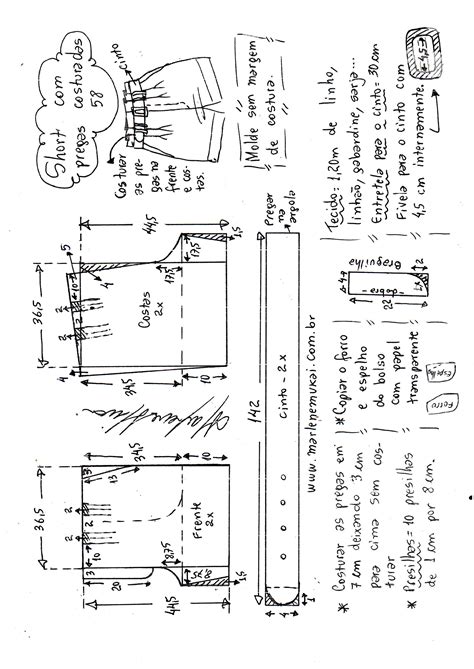 Short
com
pregas costuradas
58
cinto
Costurar
as pre-
gas na
frente
e cos-
tas.
Molde sem margem
de costura.
36,5
3
13
2
2
10
3
20
34,5
10
44,5
18,75
1,5
Frente
2x
36,5
4
2
2
10
5
4
34,5
10
44,5
17,5
17,5
1,5
Costas
2x
142
Cinto - 2x
Pregar
na
argola
4
1
www.marlenemukai.com.br
* Costurar as pregas em
7 cm deixando 3 cm
para cima sem cos-
turar
* Presilhas = 10 presilhas
de 1 cm por 8 cm.
* Copiar o forro
e espelho
do bolso
com papel
transparente
Forro
Espelho
Braguilha
4
dobra
22
2
Tecido: 1,20m de linho,
linhão, gabardine, sarja...
Entretela para o cinto = 30 cm
Fivela para o cinto com
4,5 cm internamente.
4,5